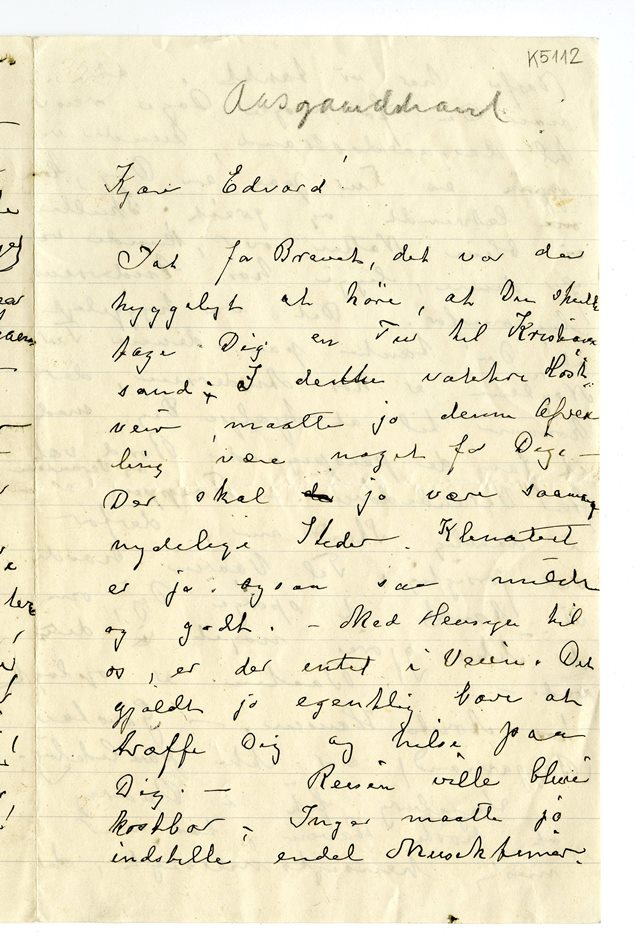 K5112
Aasgaardstrand
Kjære Edvard!
Tak for Brevet, det var da
hyggeligt at höre, at Du skulde
tage Dig en Tur til Kristian
sand; I dette vakkre Höst
veir, maatte jo denne Afvex
ling være noget for Dig. –
Der skal jo være saamange
nydelige Steder. Klimatet
er jo ogsaa saa mildt
og godt. – Med Hensyn til
os, er der intet i Veien. Det
gjaldt jo egentlig bare at
træffe Dig og hilse paa
Dig. – Reisen ville blive
kostbar – Inger maatte jo
indstille endel Musiktimer.